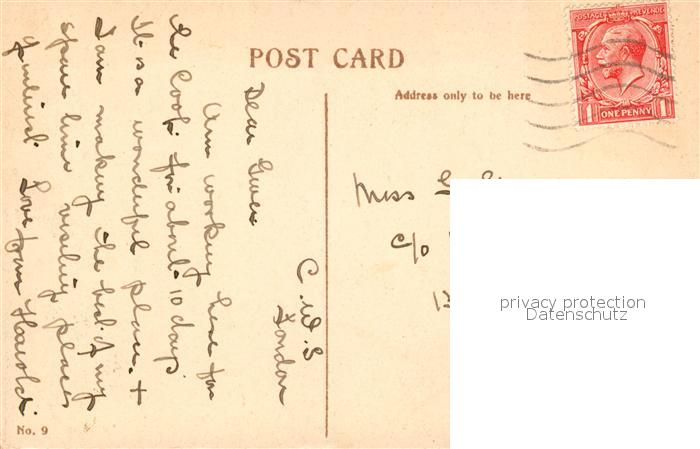 POST CARD
POSTAGE REVENUE
ONE PENNY
1 1
Address only to be here
C.W.S
London
Dear Gwen
Am working here for
the Coop for about 10 days
It is a wonderful place +
I am making the best of my
spare time visiting places
of interest. Love from Harold.
Miss G
c/o
No. 9
privacy protection
Datenschutz